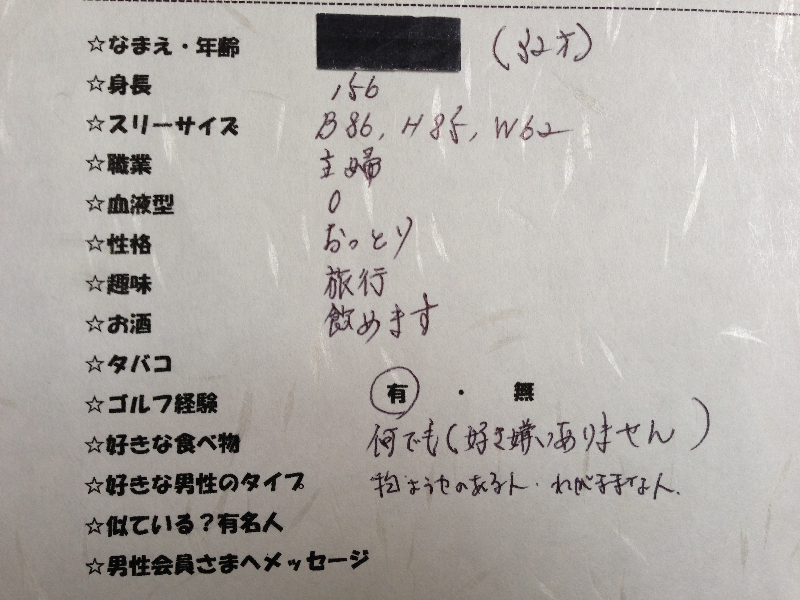 ☆なまえ・年齢 (32才)
☆身長 156
☆スリーサイズ B86, H85, W62
☆職業 主婦
☆血液型 O
☆性格 おっとり
☆趣味 旅行
☆お酒 飲めます
☆タバコ
☆ゴルフ経験 有 ・ 無
☆好きな食べ物 何でも(好き嫌いありません)
☆好きな男性のタイプ のある人・わがままな人.
☆似ている?有名人
☆男性会員さまへメッセージ